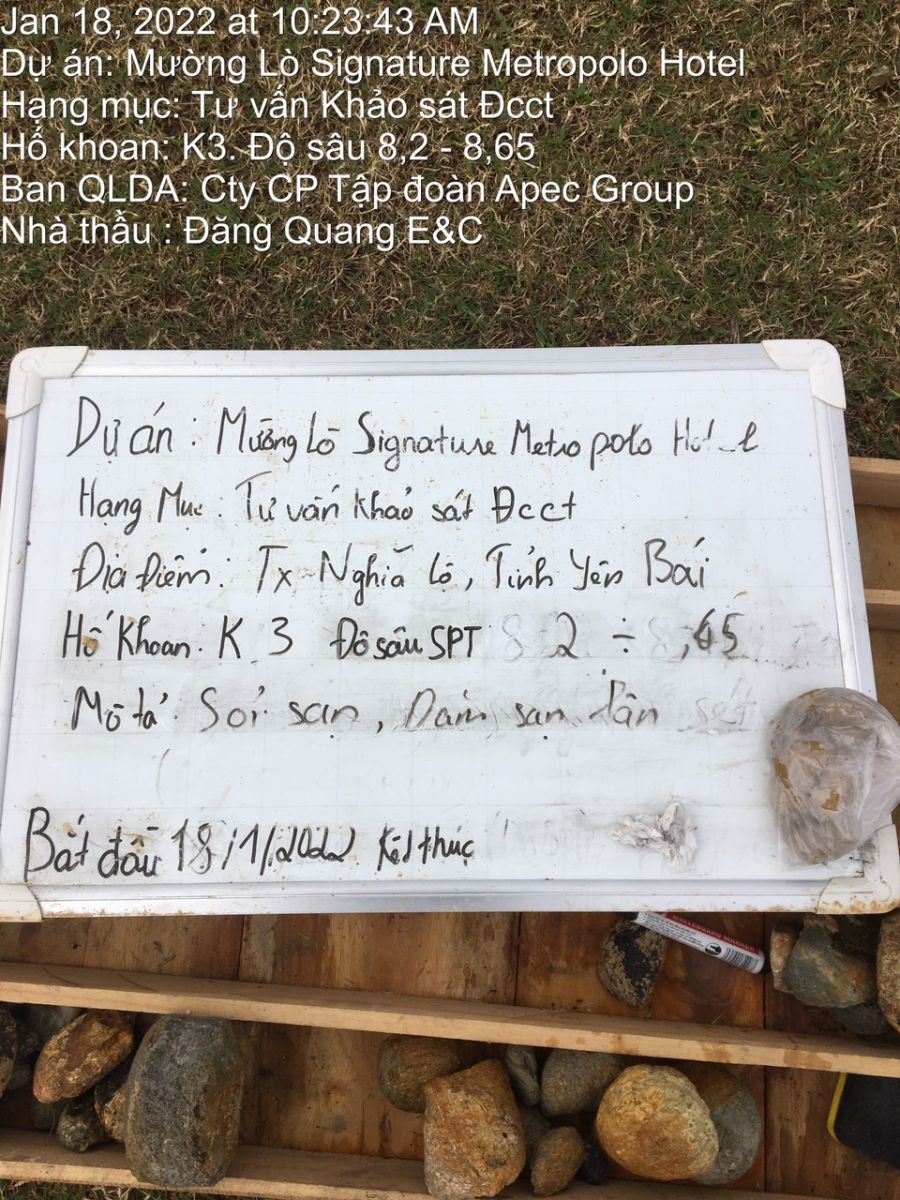 Jan 18, 2022 at 10:23:43 AM
Dự án: Mường Lò Signature Metropolo Hotel
Hạng mục: Tư vấn Khảo sát Đcct
Hố khoan: K3. Độ sâu 8,2 - 8,65
Ban QLDA: Cty CP Tập đoàn Apec Group
Nhà thầu : Đăng Quang E&C
Dự án : Mường Lò Signature Metropolo Hotel
Hạng Mục : Tư vấn khảo sát Đcct
Địa Điểm : Tx Nghĩa Lộ, Tỉnh Yên Bái
Hố Khoan : K 3 Độ sâu SPT 8 2 ÷ 8,65
Mô tả : Sỏi sạn, Dăm sạn lẫn sét
Bắt đầu 18/1/2022 Kết thúc